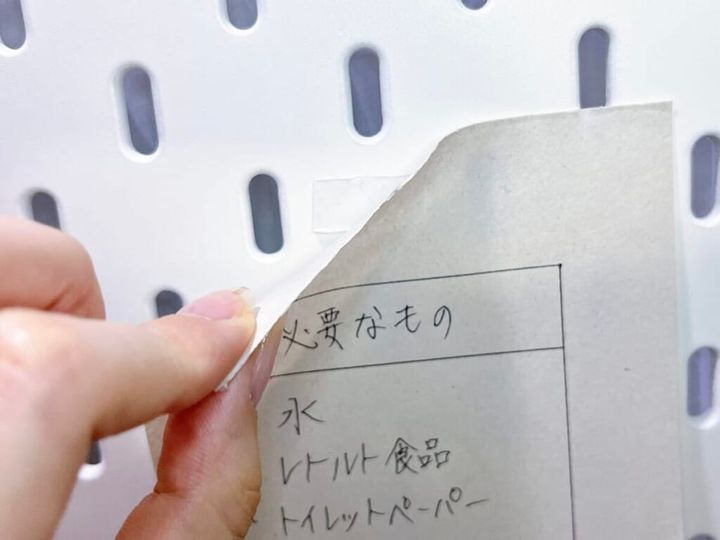 必要なもの
水
レトルト食品
トイレットペーパー